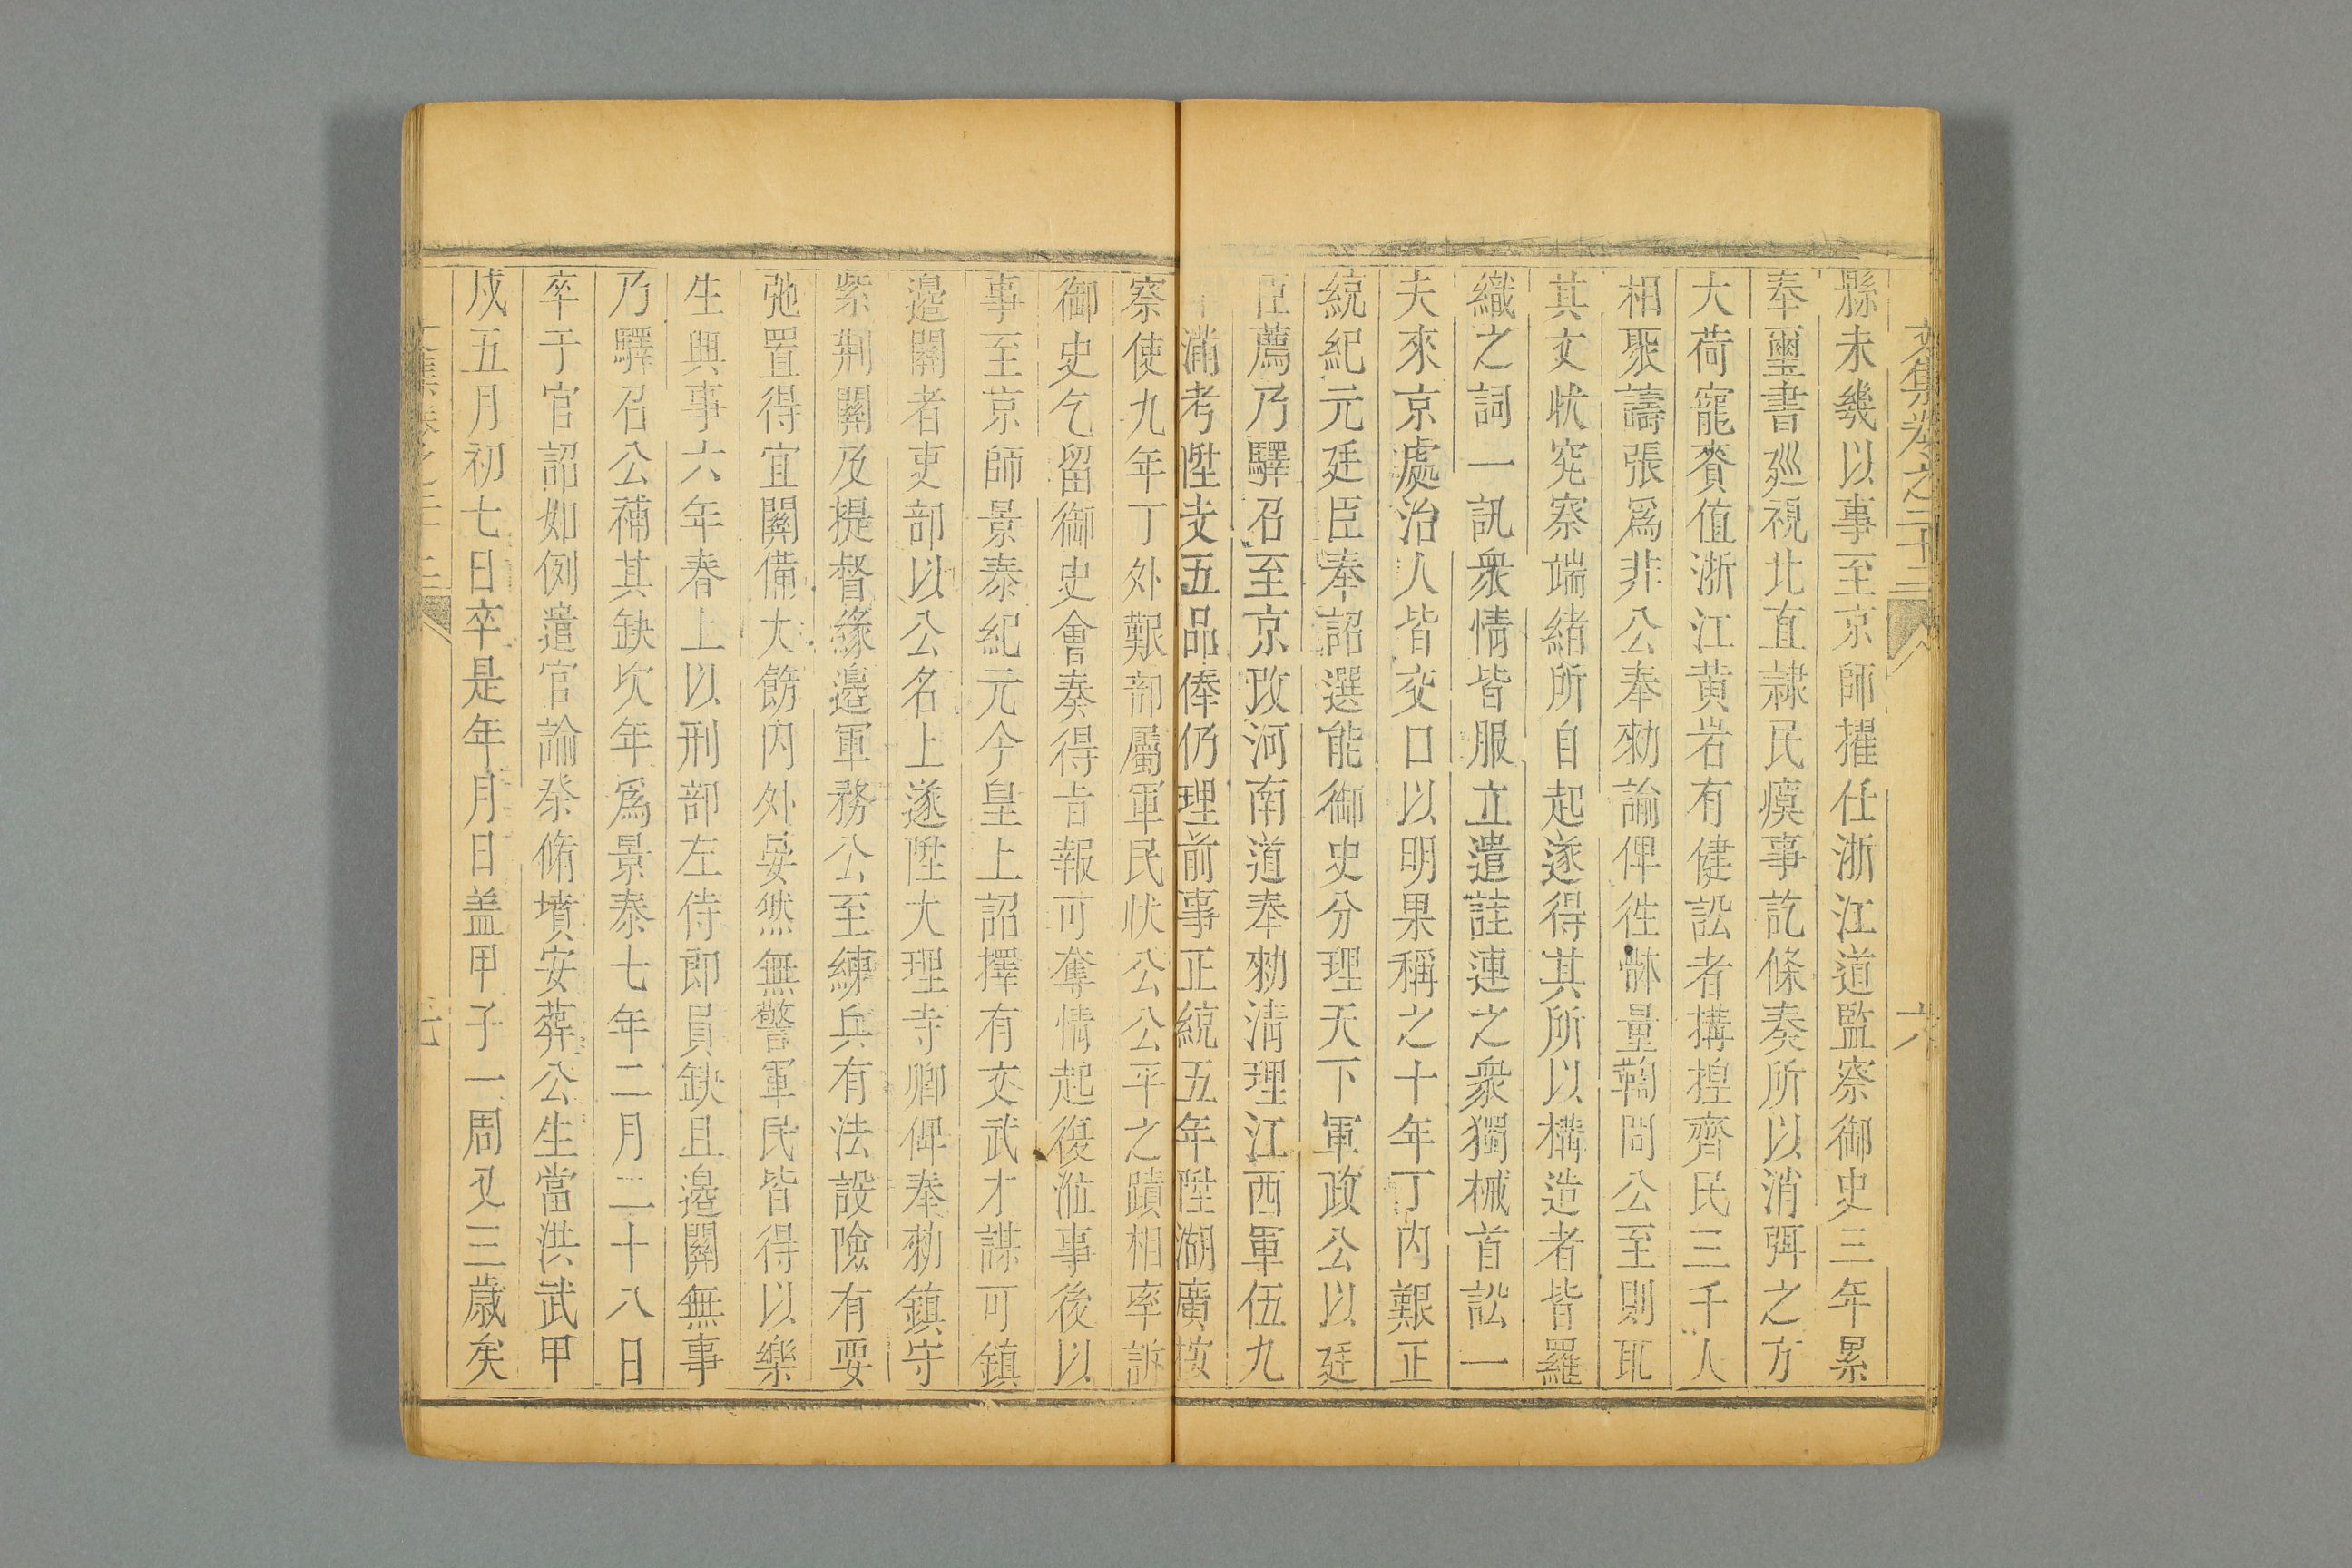 文集卷之二十二 六
縣未幾以事至京師擢任浙江道監察御史三年累
奉璽書廵視北直隷民瘼事訖條奏所以消弭之方
大荷寵賚值浙江黄岩有健訟者搆揑齊民三千人
相聚譸張爲非公奉勑諭俾徃躰量鞫問公至則取
其文狀究察端緒所自起遂得其所以構造者皆羅
織之詞一訊衆情皆服立遣詿連之衆獨械首訟一
夫來京處治人皆交口以明果稱之十年丁内艱正
統紀元廷臣奉詔選能御史分理天下軍政公以廷
臣薦乃驛召至京改河南道奉勑清理江西軍伍九
滿考陞支五品俸仍理前事正統五年陞湖廣按
察使九年丁外艱部屬軍民狀公公平之蹟相率訴
御史乞留御史會奏得㫖報可奪情起復涖事後以
事至京師景泰紀元今皇上詔擇有文武才謀可鎮
邉關者吏部以公名上遂陞大理寺卿俾奉勑鎮守
紫荆關及提督緣邉軍務公至練兵有法設險有要
弛置得宜關備大飭内外晏然無警軍民皆得以樂
生興事六年春上以刑部左侍郎員缺且邉關無事
乃驛召公補其缺次年爲景泰七年二月二十八日
卒于官詔如例遣官諭祭脩墳安葬公生當洪武甲
戍五月初七日卒是年月日盖甲子一周又三歲矣